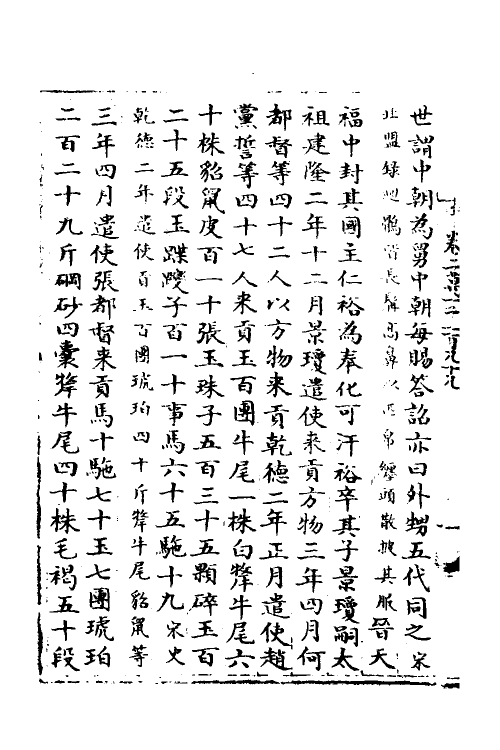 世謂中朝為舅中朝每賜答詔亦曰外甥五代同之宋
北盟録
長髯高鼻以疋帛纏頭散披其服晉天
福中封其國主仁裕為奉化可汗裕卒其子景瓊嗣太
祖建隆二年十二月景瓊遣使来貢方物三年四月何
都督等四十二人以方物来貢乾德二年正月遣使趙
黨誓等四十七人来貢玉百團牛尾一株白犛牛尾六
十株貂鼠皮百一十張玉珠子五百三十五顆碎玉百
二十五段玉蹀躞子百一十事馬六十五駞十九宋史
乾德二年遣使貢玉百團琥珀四十斤犛牛尾貂鼠等
三年四月遣使張都督来貢馬十駞七十玉七團琥珀
二百二十九斤硇砂四囊犛牛尾四十株毛褐五十段